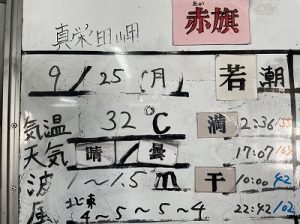 あか
赤旗
真栄田岬
9/25(月) 若潮
気温 32℃ 満 2:36/55
天気 晴/曇 17:07/63
波 1~1.5m 干 10:00/42
風 北東 4~5~5~4 22:42/02